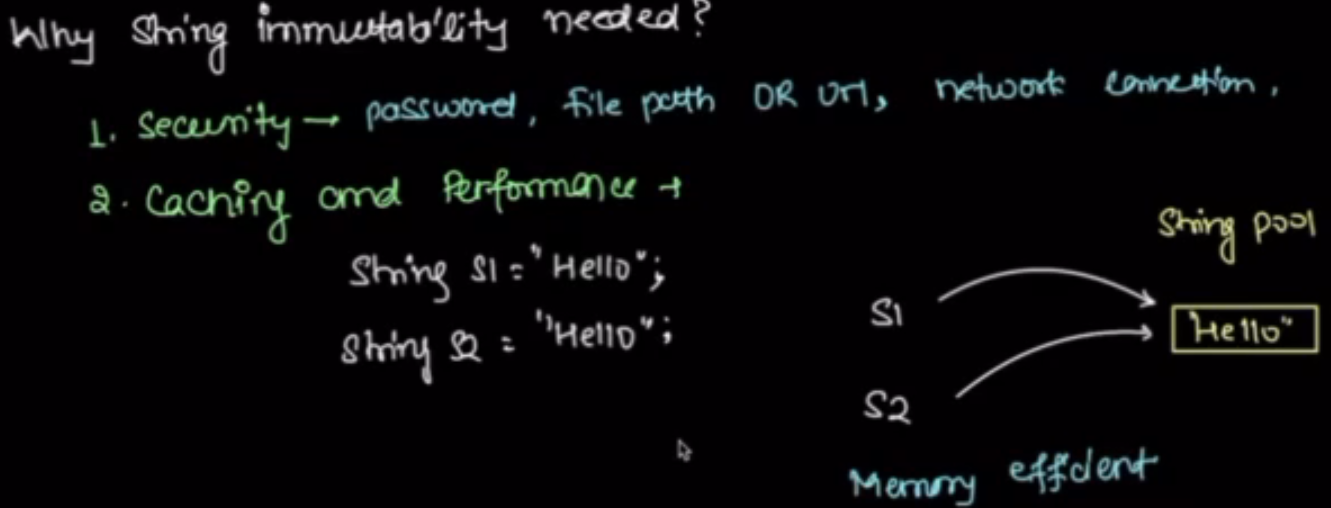 Why String immutability needed?
1. Security → password, file path OR Url, network connection,
2. Caching and Performance →
String pool
String S1 = "Hello";
S1
"Hello"
String S2 = "Hello";
S2
Memory efficient